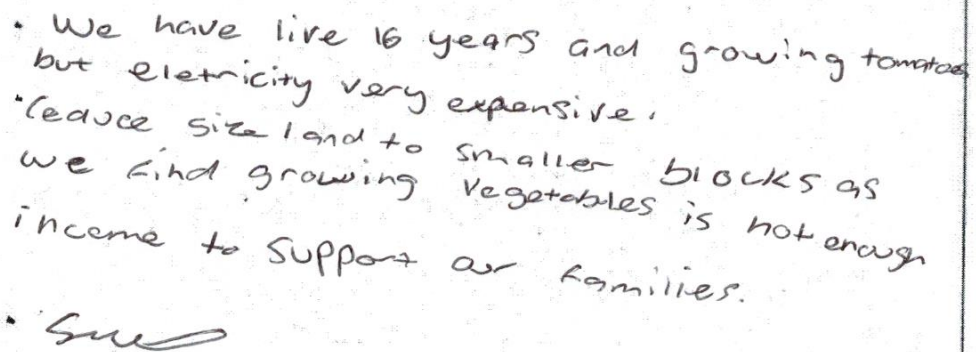 • We have live 16 years and growing tomatoes
but eletricity very expensive.
• reduce size land to smaller blocks as
we find growing vegetables is not enough
income to support our families.
•